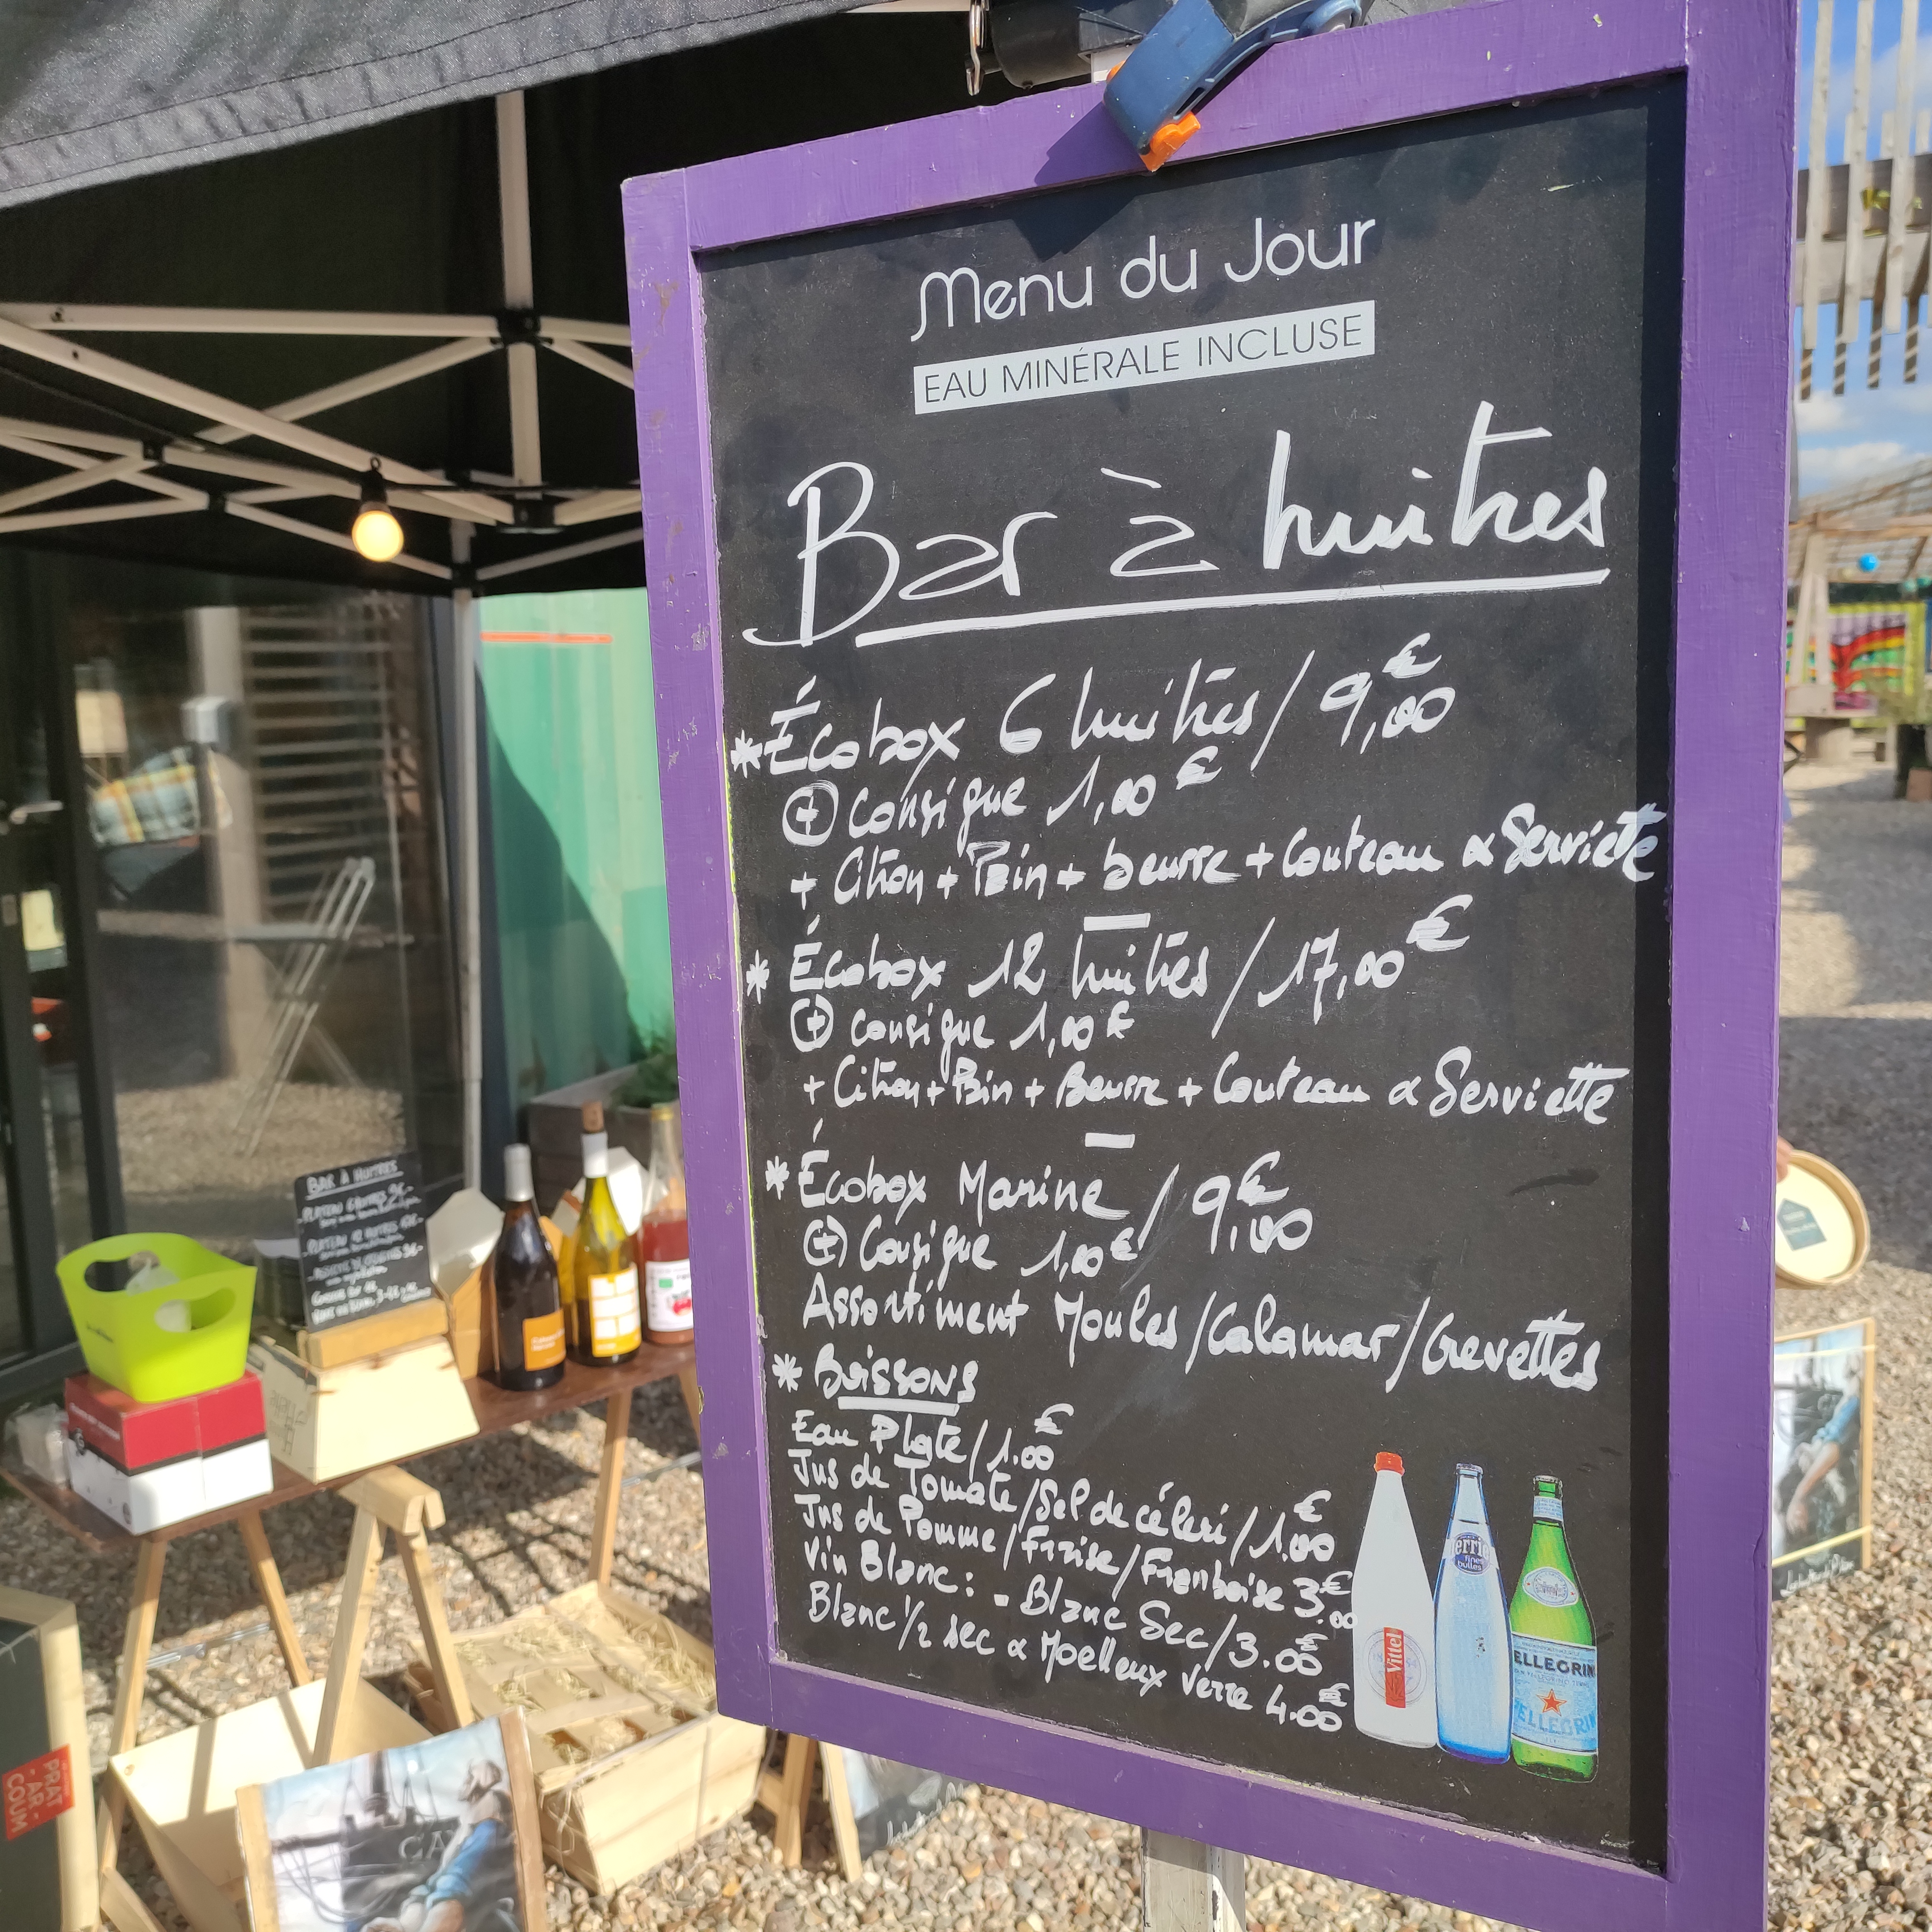 Menu du Jour
EAU MINÉRALE INCLUSE
Bar à huitres
* Écobox 6 huitres / 9,00€
⊕ Consigue 1,00€
+ Citron + Pain + beurre + Couteau & Serviette
* Écobox 12 huitres / 17,00€
⊕ Consigue 1,00€
+ Citron + Pain + Beurre + Couteau & Serviette
* Écobox Marine / 9,00€
⊕ Consigue 1,00€
Assortiment Moules/Calamar/Crevettes
* BoissoNs
Eau Plate/1.00€
Jus de Tomate/Sel de céleri/1.00€
Jus de Pomme/Fraise/Framboise 3.00€
Vin Blanc: - Blanc Sec/3.00€
Blanc 1/2 sec & Moelleux Verre 4.00€
Vittel
fines
bulles
ELLEGRIN
PELLEGRI
BAR À HUITRES
PRAT
-AR-
COUM
CA